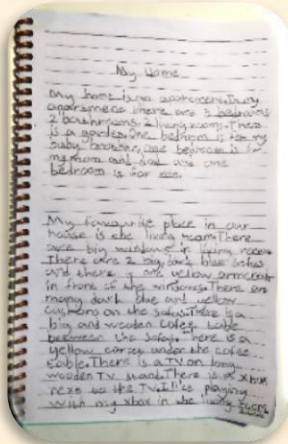 My Home
My home is an apartment. In my
apartment there are 3 bedrooms
2 bathrooms 1 living room. There
is a garden. One bedroom is for my
baby brother, one bedroom is for
my mom and dad and one
bedroom is for me.
My favourite place in our
house is the living room. There
are big windows in living room
There are 2 big dark blue sofas
and there is one yellow armchair
in front of the windows. There are
many dark blue and yellow
cushions on the sofas. There is a
big and wooden coffee table
between the sofas. There is a
yellow carpet under the coffee
table. There is a TV on brown
wooden TV stand. There is a xbox
next to the TV. I like playing
with my xbox in the living